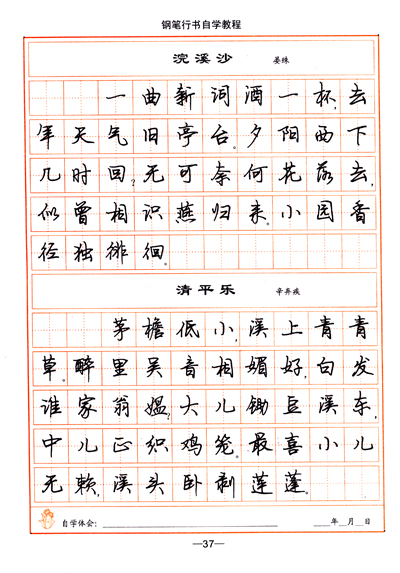 钢笔行书自学教程
浣溪沙 晏殊
一曲新词酒一杯,去
年天气旧亭台。夕阳西下
几时回?无可奈何花落去,
似曾相识燕归来。小园香
径独徘徊。
清平乐 辛弃疾
茅檐低小,溪上青青
草。醉里吴音相媚好,白发
谁家翁媪?大儿锄豆溪东,
中儿正织鸡笼。最喜小儿
无赖,溪头卧剥莲蓬。
自学体会: 年 月 日
—37—